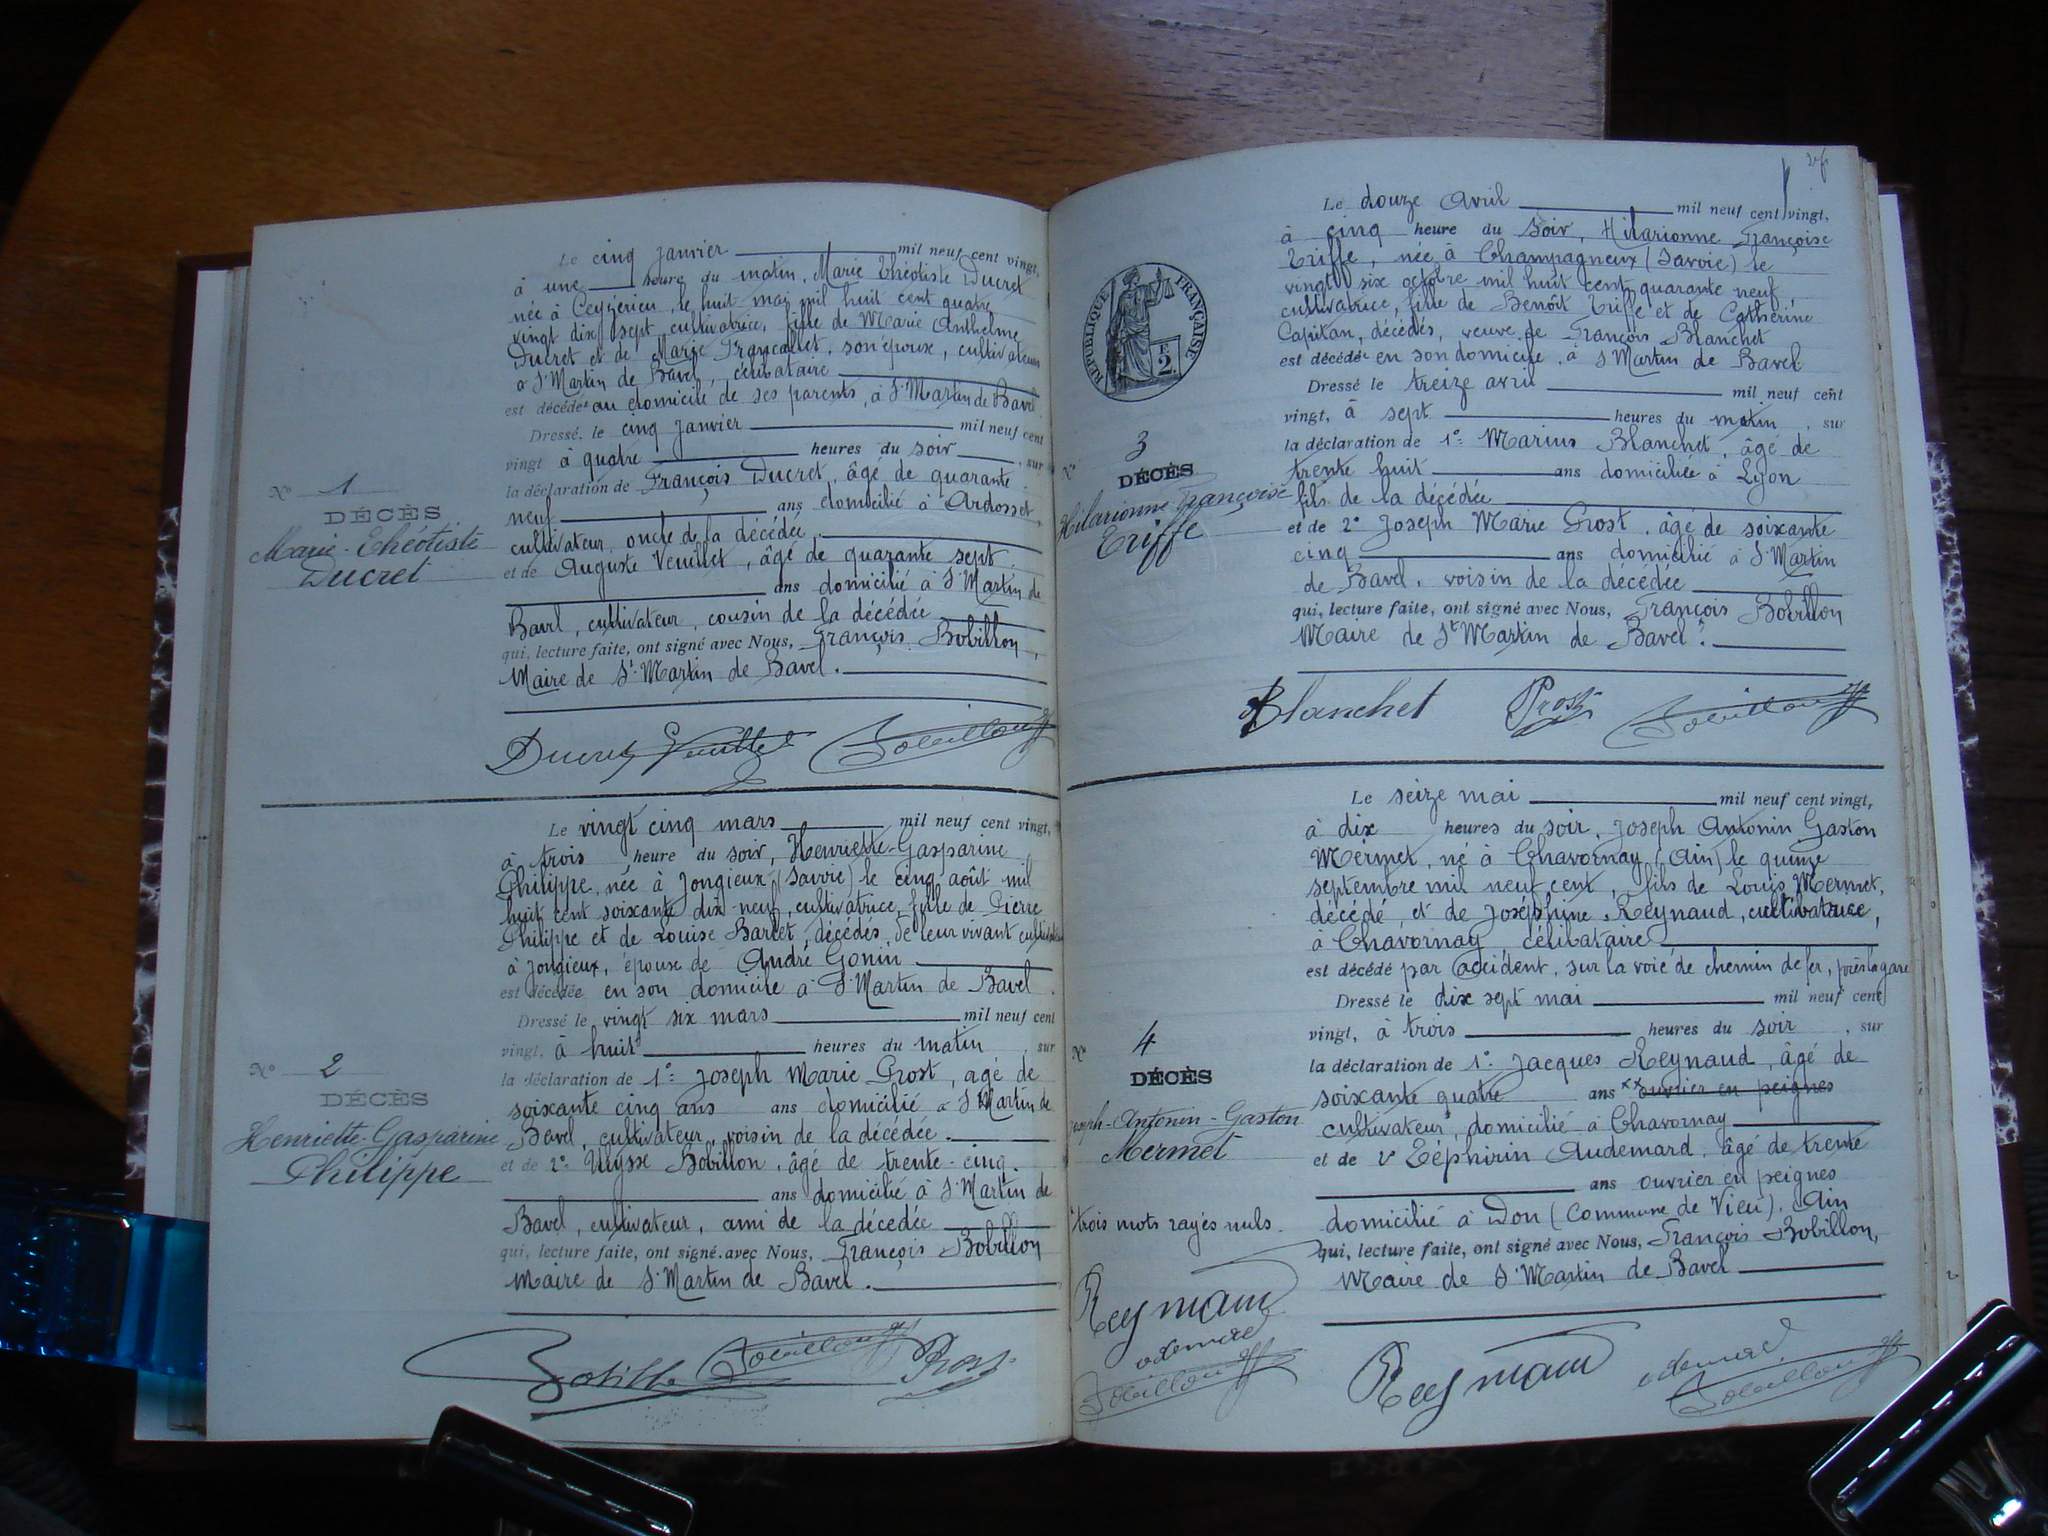 Le cinq janvier mil neuf cent vingt,
à une heure du matin, Marie Théotiste Ducret
née à Ceyzérieu, le huit mai mil huit cent quatre
vingt dix sept, cultivatrice, fille de Marie Anthelme
Ducret et de Marie Françallet, son épouse, cultivateurs
à St Martin de Bavel, célibataire
est décédée au domicile de ses parents, à St Martin de Bavel.
Dressé le cinq janvier mil neuf cent
vingt à quatre heures du soir, sur
la déclaration de François Ducret, âgé de quarante
neuf ans domicilié à Ardosset,
cultivateur, oncle de la décédée,
et de Auguste Veuillet, âgé de quarante sept
ans domicilié à St Martin de
Bavel, cultivateur, cousin de la décédée
qui, lecture faite, ont signé avec Nous, François Bobillon,
Maire de St Martin de Bavel.
No 1
DÉCÈS
Marie-Théotiste
Ducret
Ducret Veuillet Bobillon
Le vingt cinq mars mil neuf cent vingt,
à trois heure du soir, Henriette-Gasparine
Philippe, née à Jongieux, (Savoie) le cinq août mil
huit cent soixante dix-neuf, cultivatrice, fille de Pierre
Philippe et de Louise Barlet, décédés, de leur vivant cultivateurs
à Jongieux, épouse de André Gonin
est décédée en son domicile à St Martin de Bavel.
Dressé le vingt six mars mil neuf cent
vingt, à huit heures du matin, sur
la déclaration de 1° Joseph Marie Prost, agé de
soixante cinq ans ans domicilié à St Martin de
Bavel, cultivateur, voisin de la décédée.
et de 2° Ulysse Bobillon, âgé de trente-cinq.
ans domicilié à St Martin de
Bavel, cultivateur, ami de la décédée
qui, lecture faite, ont signé avec Nous, François Bobillon
Maire de St Martin de Bavel.
No 2
DÉCÈS
Henriette-Gasparine
Philippe
Bobillon Prost
Le douze Avril mil neuf cent vingt,
à cinq heure du soir, Hilarionne Françoise
Triffe, née à Champagneux (Savoie) le
vingt six octobre mil huit cent quarante neuf
cultivatrice, fille de Benoît Triffe et de Catherine
Capitan, décédés, veuve de François Blanchet
est décédée en son domicile, à St Martin de Bavel
Dressé le treize avril mil neuf cent
vingt, à sept heures du matin, sur
la déclaration de 1° Marius Blanchet, âgé de
trente huit ans domiciliée à Lyon
fils de la décédée
et de 2° Joseph Marie Prost, âgé de soixante
cinq ans domicilié à St Martin
de Bavel, voisin de la décédée
qui, lecture faite, ont signé avec Nous, François Bobillon
Maire de St Martin de Bavel.
RÉPUBLIQUE FRANÇAISE
F.
2.
No 3
DÉCÈS
Hilarionne Françoise
Triffe
Blanchet Prost Bobillon
Le seize mai mil neuf cent vingt,
à dix heures du soir, Joseph Antonin Gaston
Mermet, né à Chavornay (Ain) le quinze
septembre mil neuf cent, fils de Louis Mermet,
décédé, et de Joséphine Reynaud, cultivatrice,
à Chavornay, célibataire
est décédé par accident, sur la voie de chemin de fer, près la gare
Dressé le dix sept mai mil neuf cent
vingt, à trois heures du soir, sur
la déclaration de 1° Jacques Reynaud, âgé de
soixante quatre ans ouvrier en peignes
cultivateur, domicilié à Chavornay
et de 2° Zéphirin Audemard, âgé de trente
ans ouvrier en peignes
domicilié à Don (Commune de Vieu), Ain
qui, lecture faite, ont signé avec Nous, François Bobillon,
Maire de St Martin de Bavel
No 4
DÉCÈS
Joseph-Antonin-Gaston
Mermet
trois mots rayés nuls.